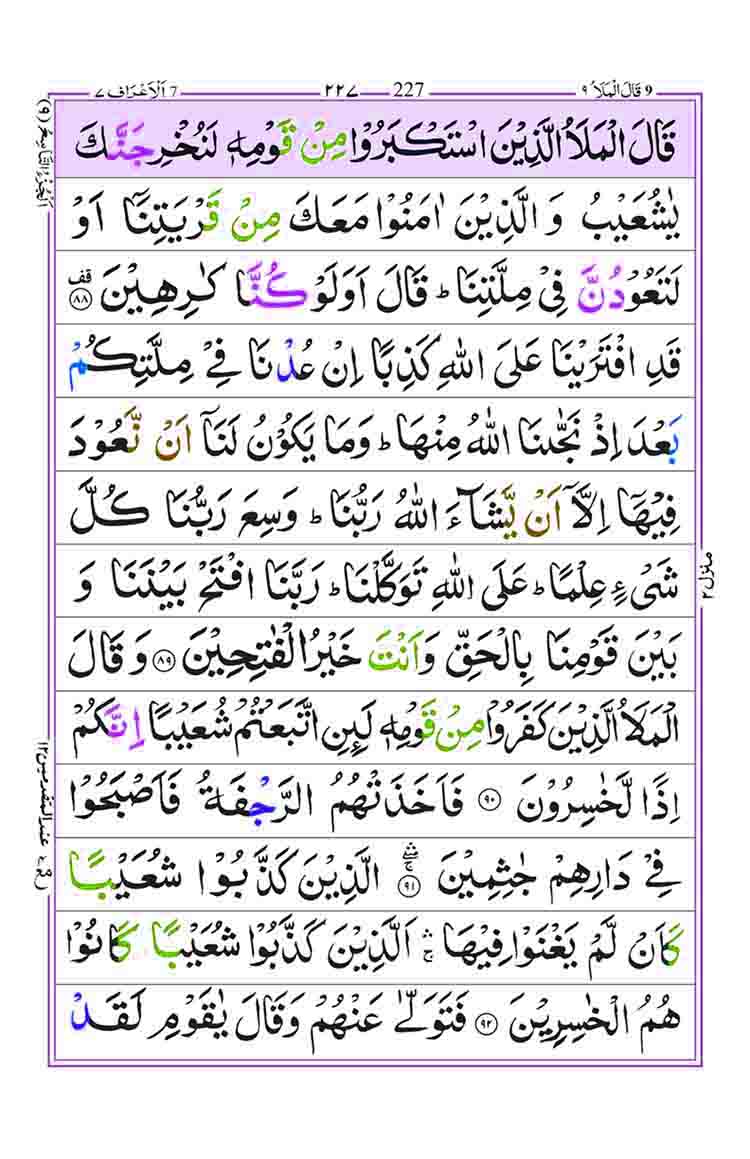 9 قَالَ الْمَلَاُ ٩ 227 ٢٢٧ 7 اَلْاَعْرَاف ٧
قَالَ الْمَلَاُ الَّذِیْنَ اسْتَكْبَرُوْا مِنْ قَوْمِهٖ لَنُخْرِجَنَّكَ
یٰشُعَیْبُ وَ الَّذِیْنَ اٰمَنُوْا مَعَكَ مِنْ قَرْیَتِنَاۤ اَوْ
لَتَعُوْدُنَّ فِیْ مِلَّتِنَا ؕ قَالَ اَوَلَوْ كُنَّا كٰرِهِیْنَ ۟ۚ ﴿۸۸﴾ قف
قَدِ افْتَرَیْنَا عَلَی اللّٰهِ كَذِبًا اِنْ عُدْنَا فِیْ مِلَّتِكُمْ
بَعْدَ اِذْ نَجّٰىنَا اللّٰهُ مِنْهَا ؕ وَمَا یَكُوْنُ لَنَاۤ اَنْ نَّعُوْدَ
فِیْهَاۤ اِلَّاۤ اَنْ یَّشَآءَ اللّٰهُ رَبُّنَا ؕ وَسِعَ رَبُّنَا كُلَّ
شَیْءٍ عِلْمًا ؕ عَلَی اللّٰهِ تَوَكَّلْنَا ؕ رَبَّنَا افْتَحْ بَیْنَنَا وَ
بَیْنَ قَوْمِنَا بِالْحَقِّ وَاَنْتَ خَیْرُ الْفٰتِحِیْنَ ﴿۸۹﴾ وَ قَالَ
الْمَلَاُ الَّذِیْنَ كَفَرُوْا مِنْ قَوْمِهٖ لَىِٕنِ اتَّبَعْتُمْ شُعَیْبًا اِنَّكُمْ
اِذًا لَّخٰسِرُوْنَ ﴿۹۰﴾ فَاَخَذَتْهُمُ الرَّجْفَةُ فَاَصْبَحُوْا
فِیْ دَارِهِمْ جٰثِمِیْنَ ﴿۹۱﴾ الَّذِیْنَ كَذَّبُوْا شُعَیْبًا
كَاَنْ لَّمْ یَغْنَوْا فِیْهَا ۛۚ اَلَّذِیْنَ كَذَّبُوْا شُعَیْبًا كَانُوْا
هُمُ الْخٰسِرِیْنَ ﴿۹۲﴾ فَتَوَلّٰی عَنْهُمْ وَقَالَ یٰقَوْمِ لَقَدْ
اَلْجُزْءُ التَّاسِعُ (٩)
منزل ٢
عند المتقدمین ١٢